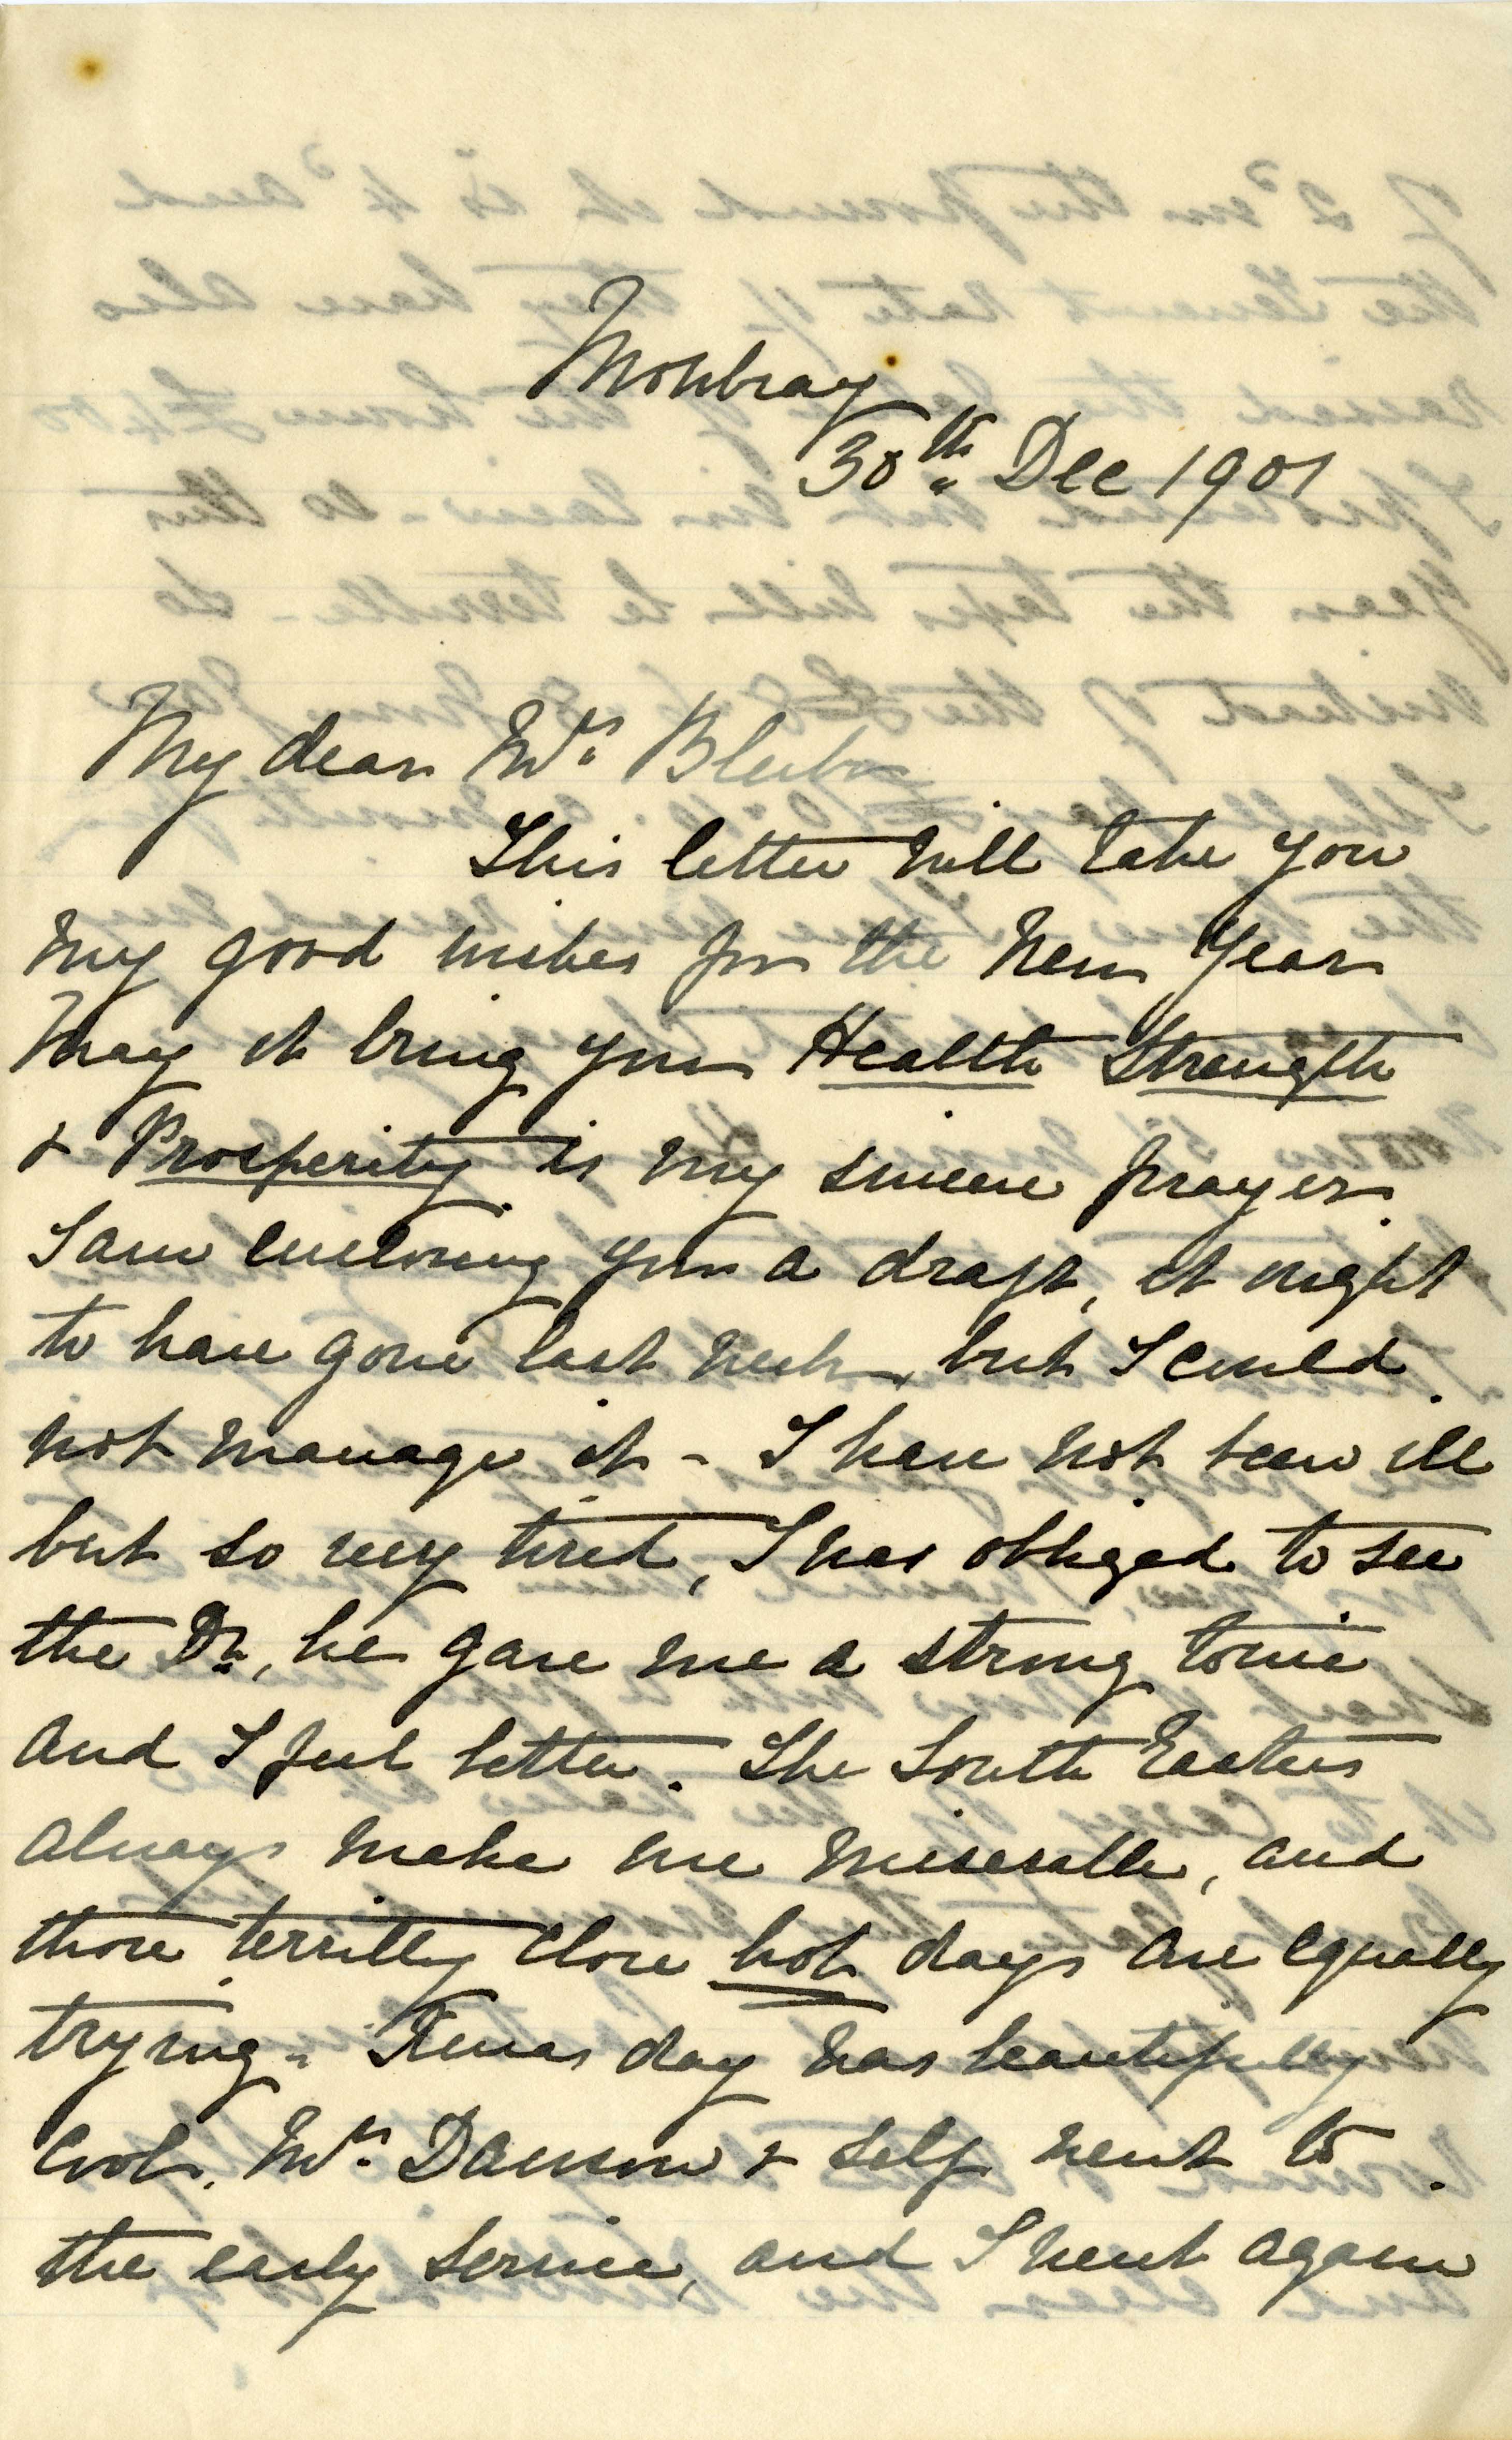 Mowbray
30th Dec 1901
My dear Mrs Bleeker
This letter will take you
my good wishes for the New Year
May it bring you Health Strength
& Prosperity is my sincere prayer.
I am enclosing you a draft, it ought
to have gone last week, but I could
not manage it - I have not been ill
but so very tired, I was obliged to see
the Dr, he gave me a strong tonic
and I feel better. The South Easters
always make me miserable, and
those terribly close hot days are equally
trying - Xmas day was beautifully
cool. Mrs Dawson & self went to
the early service, and I went again